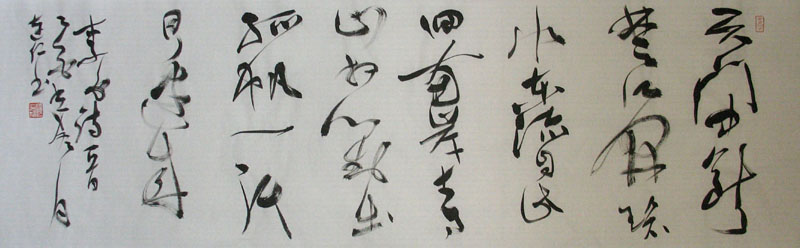 天門中斷
楚江開碧
水東流至此
回兩岸青
山相對出
孤帆一片
日邊來
李白詩一首
月
仁书